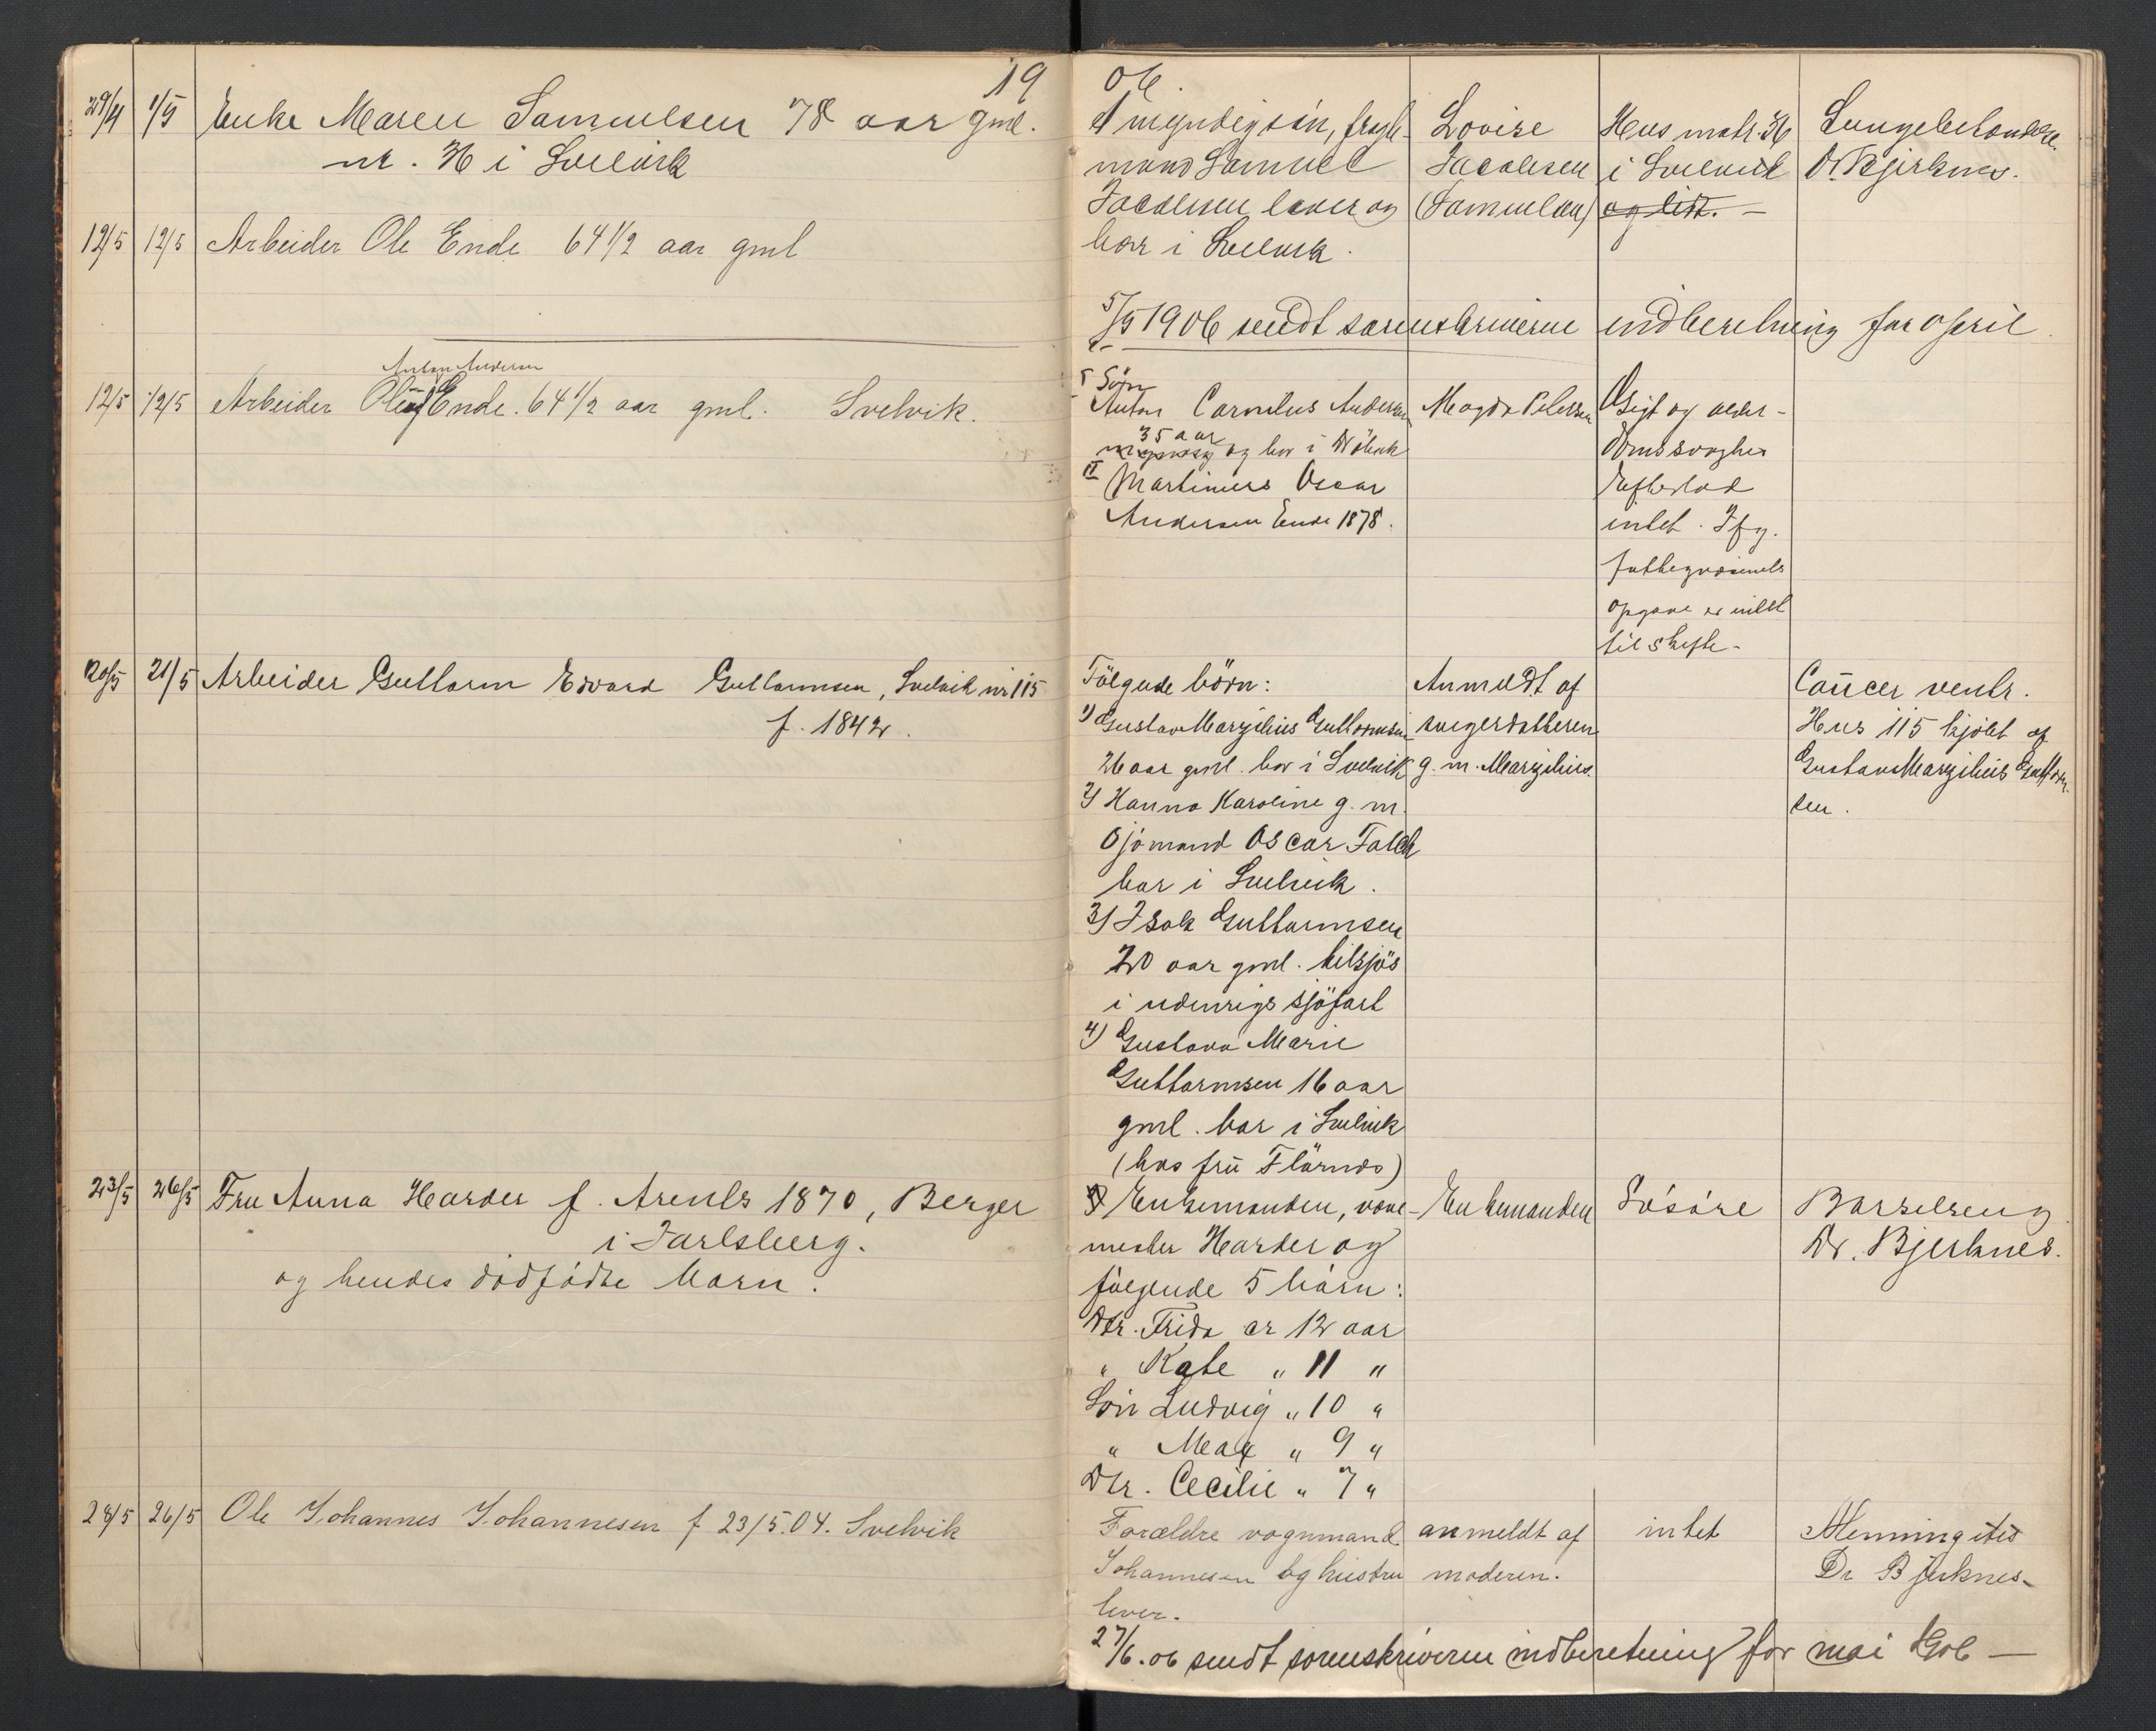 19
29/4 1/5 Enke Maren Samuelsen 78 aar gml.
nr. 36 i Svelvik
12/5 12/5 Arbeider Ole Ende 64 1/2 aar gml
Anton Andersen
12/5 12/5 Arbeider Ende. 64 1/2 aar gml. Svelvik.
20/5 21/5 Arbeider Guttorm Edvard Guttormsen, Svelvik nr 115
f. 1842.
23/5 26/5 Fru Anna Harder f. Arents 1870, Berger
i Jarlsberg.
og hendes dödfödte barn.
26/5 Ole Johannes Johannesen f 23/5.04. Svelvik
06.
1 myndig sön, fragt-
mand Samuel
Jacobsen lever og
bor i Svelvik.
Lovise
Jacobsen
(Samuelsen)
Hus matr. 36
i Svelvik
og list. —
Lungebetændelse.
Dr. Bjerknes.
5/5 1906 sendt sorenskriveren indberetning for april.
I Sön
Anton Cornelius Andersen
35 aar
myndig og bor i Dröbak
II
Martinius Oscar
Andersen Ende 1878.
Magda Petersen
Gigt og alder-
domssvaghed
Efterlod
intet. Ifg.
fattigvæsenets
opgave er intet
til skifte-
Fölgende börn:
1) Gustav Marzilius Guttormsen
26 aar gml. bor i Svelvik
2) Hanna Karoline g. m.
Sjömand Oscar Falch
bor i Svelvik.
3) Isak Guttormsen
20 aar gml. tilsjös
i udenrigs sjöfart
4) Gustava Marie
Guttormsen 16 aar
gml. bor i Svelvik
(hos frü )
Anmeldt af
svigerdatteren
g. m. Marzilius.
Cancer ventr.
Hus 115 kjöbt af
Gustav Marzilius Guttorm-
sen.
Enkemanden, væve-
mester Harder og
fölgende 5 börn:
Dtr. Frida er 12 aar
" Kate " 11 "
Sön Ludvig " 10 "
" Max " 9 "
Dtr. Cecilie " 7 "
Enkemanden
Barselseng
Dr. Bjerknes.
Forældre vognmand
Johannesen og hustru
lever.
anmeldt af
moderen.
intet
Menningitis
Dr Bjerknes-
27/6.06 sendt sorenskriveren indberetning for mai 1906 —